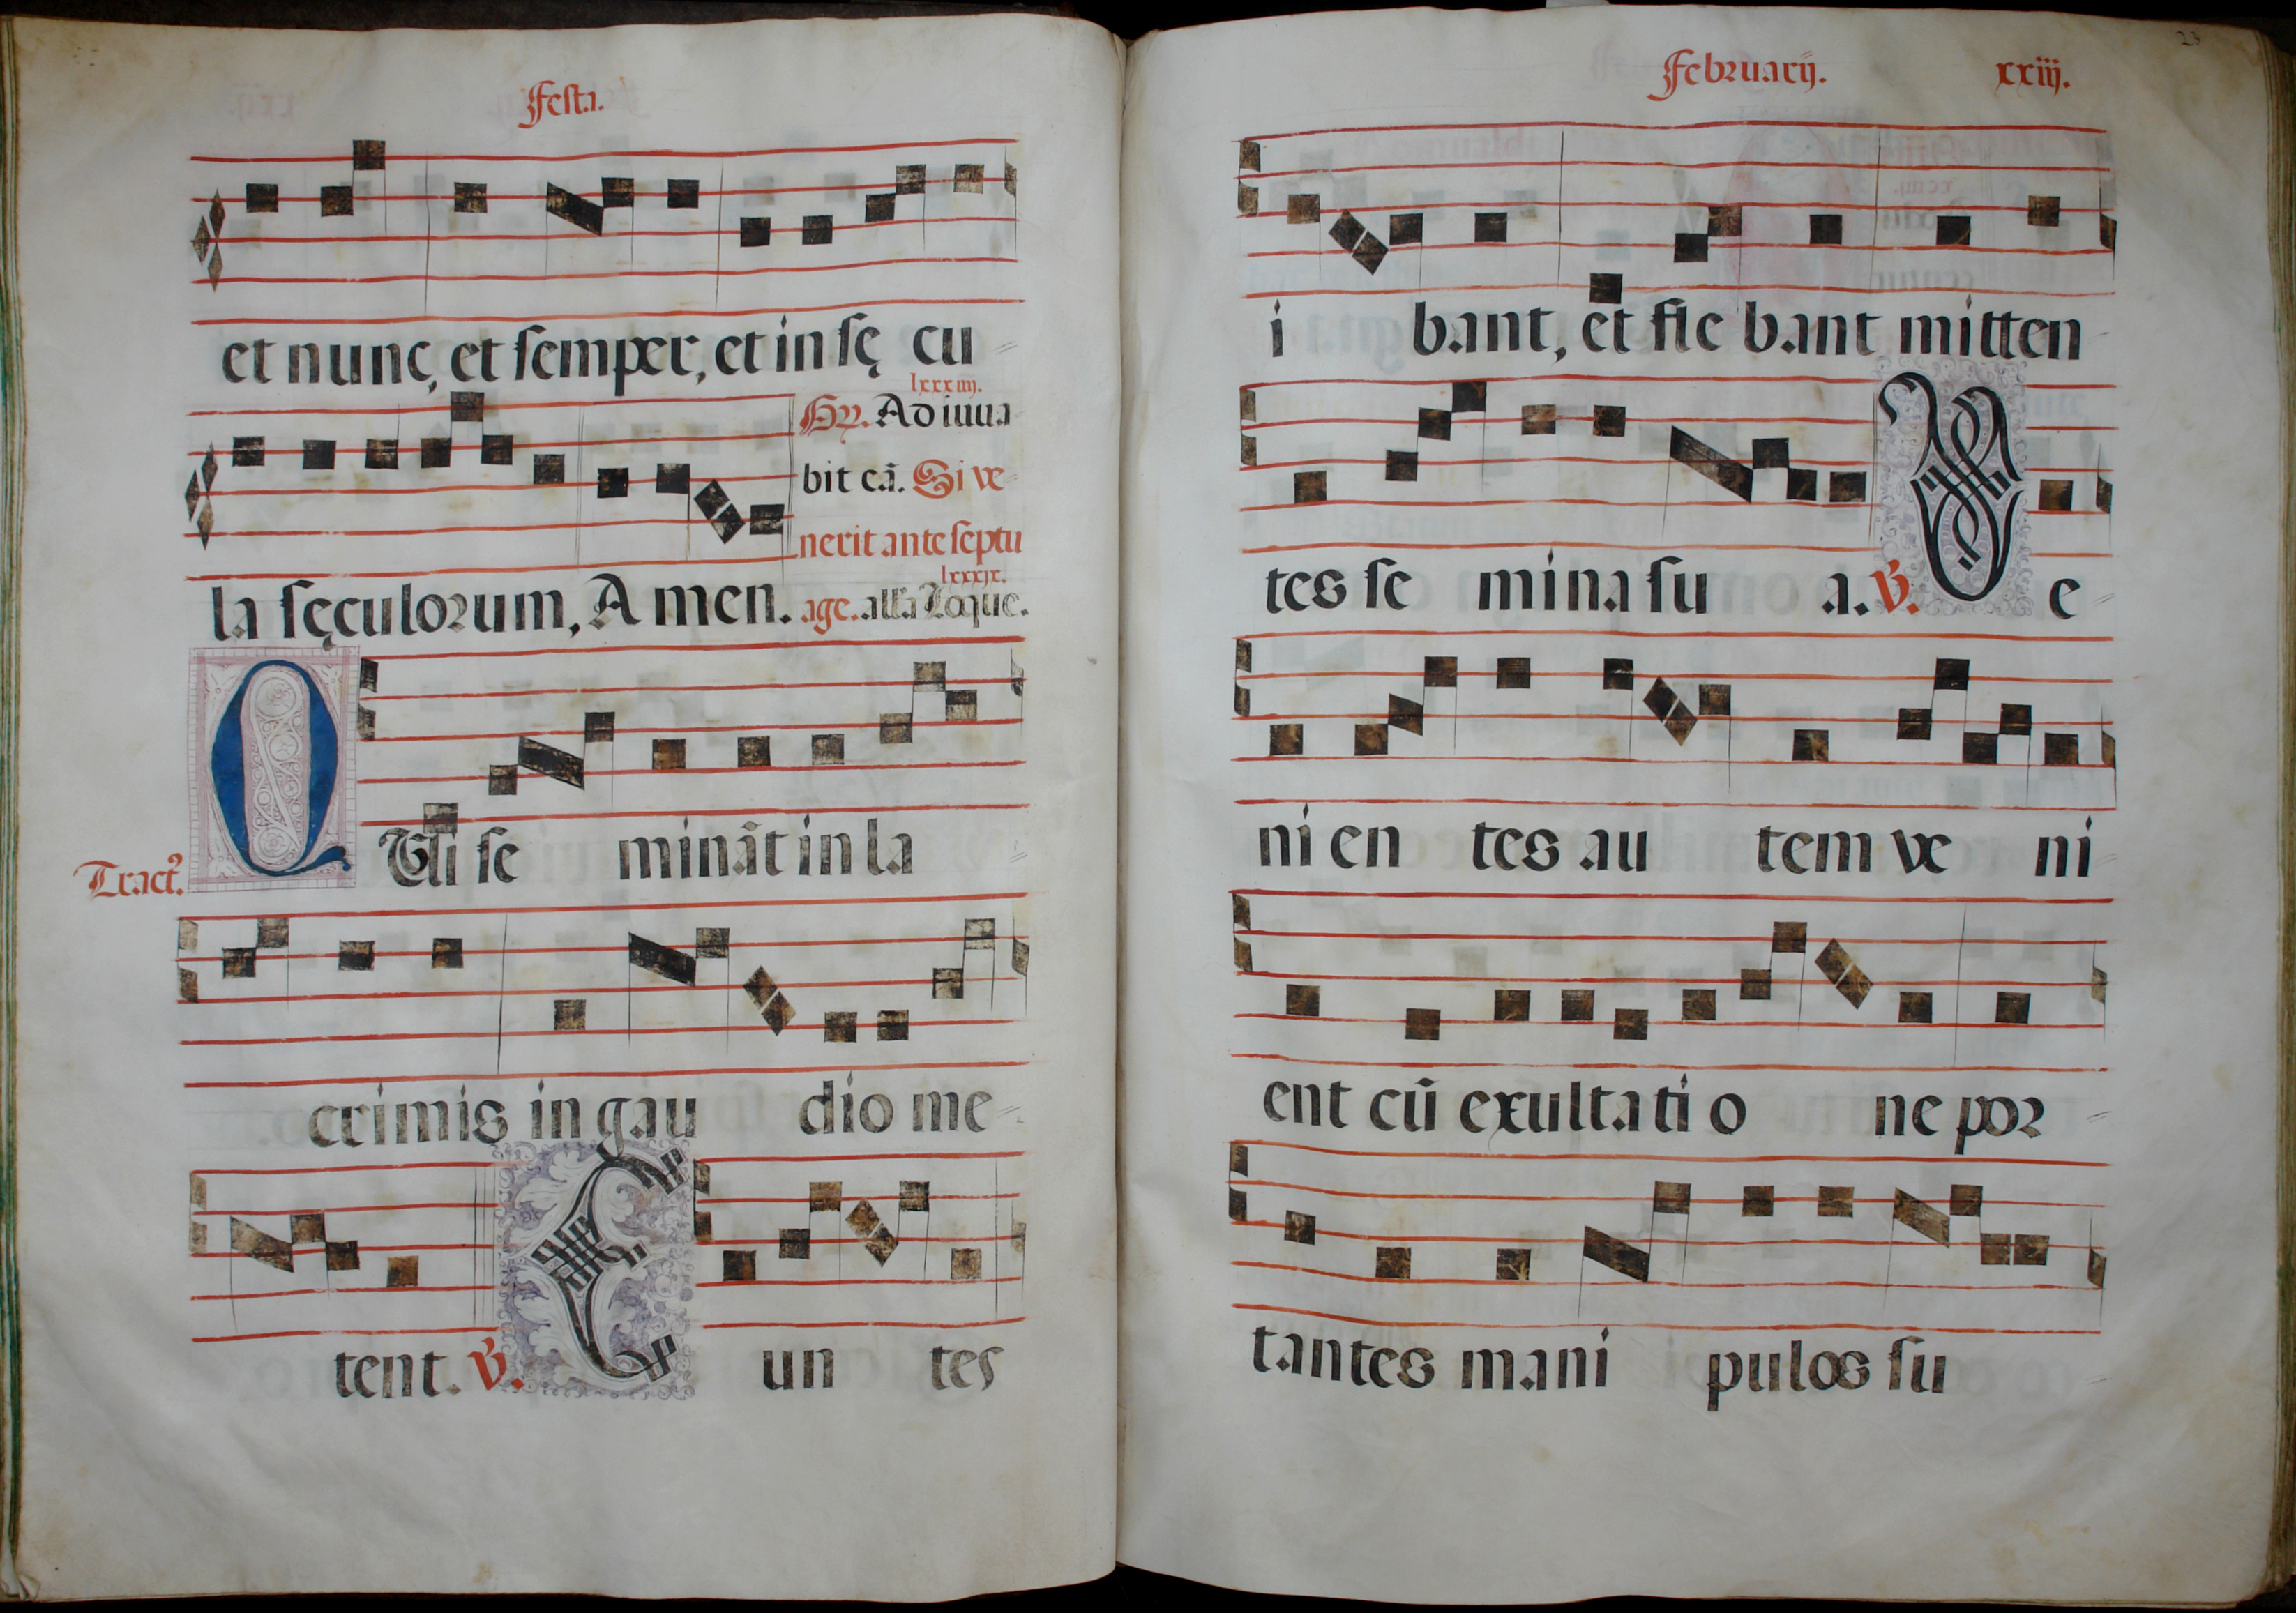 Festa.
et nunc, et semper, et in sę cu
lxxxiiij.
Gr. Adiuua
bit eā. Si ve
nerit ante septu
lxxxix.
la sęculorum, Amen. age. alla Loque.
Tract.
QUi se minā̄t in la
crimis in gau dio me
tent. V. Eun tes
Februarij. xxiij.
23
i bant, et fle bant mitten
tes se mina su a. V. Ve
ni en tes au tem ve ni
ent cū exultati o ne por
tantes mani i pulos su